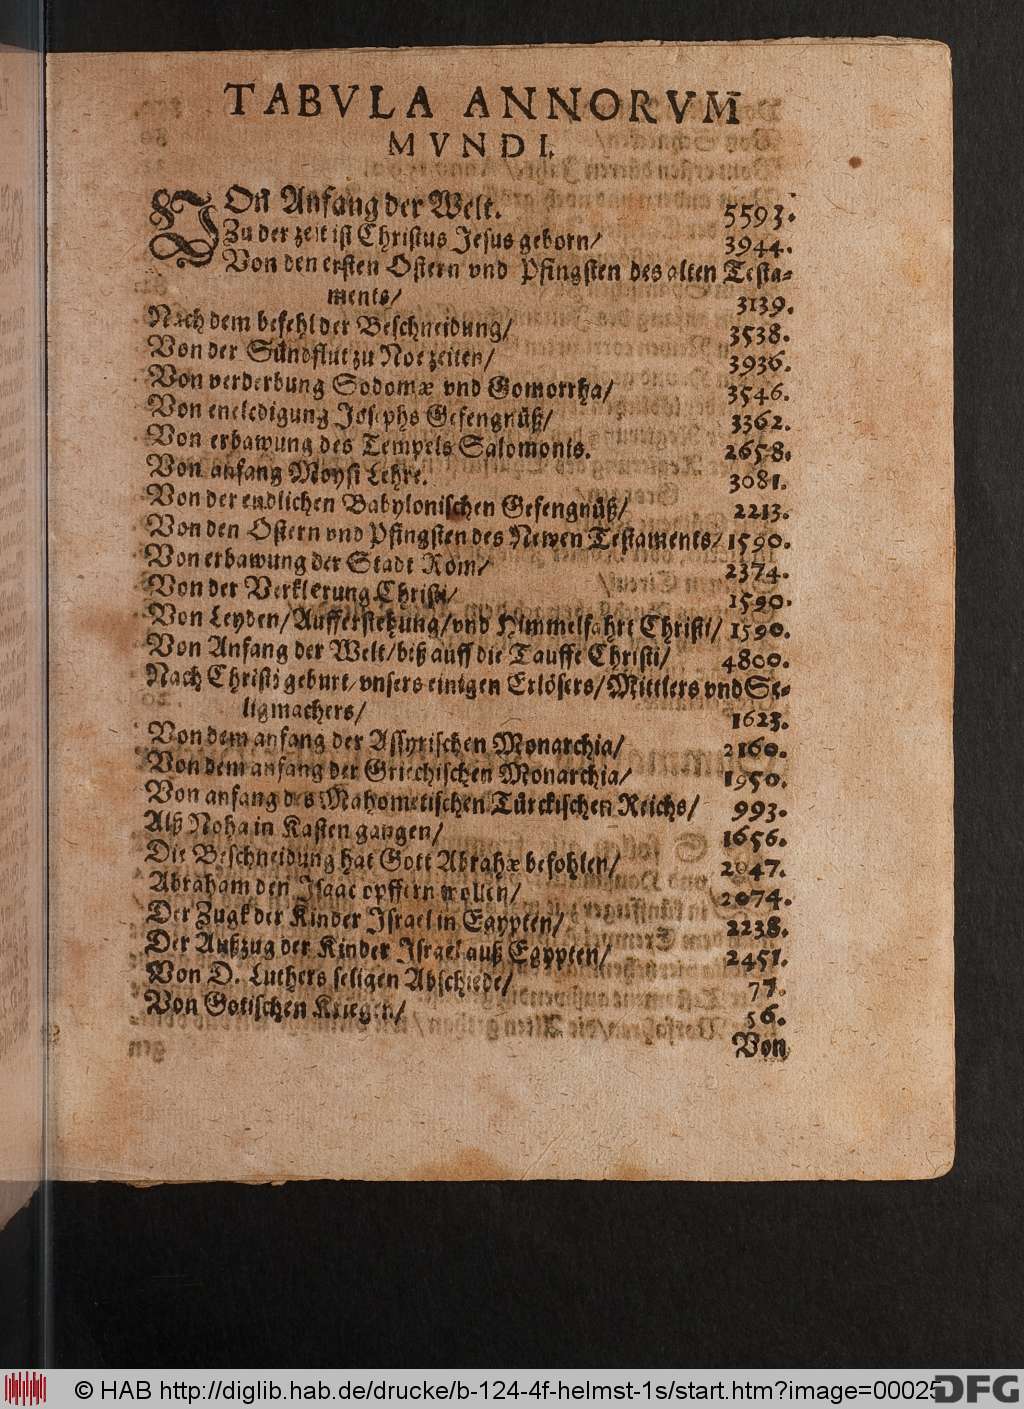 TABVLA ANNORVM
MVNDI.
VOn Anfang der Welt. 5593.
Zu der zeit ist Christus Jesus geborn/ 3944.
Von den ersten Ostern vnd Pfingsten des alten Testa-
ments/ 3139.
Nach dem befehl der Beschneidung/ 3538.
Von der Sündflut zu Noe zeiten/ 3936.
Von verderbung Sodomæ vnd Gomorrha/ 3546.
Von eneledigung Josephs Gefengnüß/ 3362.
Von erbawung des Tempels Salomonis. 2658.
Von anfang Moysi Lehre. 3081.
Von der endlichen Babylonischen Gefengnüß/ 2213.
Von den Ostern vnd Pfingsten des Newen Testaments/ 1590.
Von erbawung der Stadt Rom/ 2374.
Von der Verklerung Christi/ 1590.
Von Leyden/Aufferstehung/vnd Himmelfahrt Christi/ 1590.
Von Anfang der Welt/biß auff die Tauffe Christi/ 4800.
Nach Christi geburt/vnsers einigen Erlösers/Mittlers vnd Se-
ligmachers/ 1623.
Von dem anfang der Assyrischen Monarchia/ 2160.
Von dem anfang der Griechischen Monarchia/ 1950.
Von anfang des Mahometischen Türckischen Reichs/ 993.
Alß Noha in Kasten gangen/ 1656.
Die Beschneidung hat Gott Abrahæ befohlen/ 2047.
Abraham den Isaac opffern wollen/ 2074.
Der Zugk der Kinder Israel in Egypten/ 2238.
Der Außzug der Kinder Israel auß Egypten/ 2451.
Von D. Luthers seligen Abschiede/ 77.
Von Gotischen Kriegen/ 56.
Von
© HAB http://diglib.hab.de/drucke/b-124-4f-helmst-1s/start.htm?image=00025
DFG